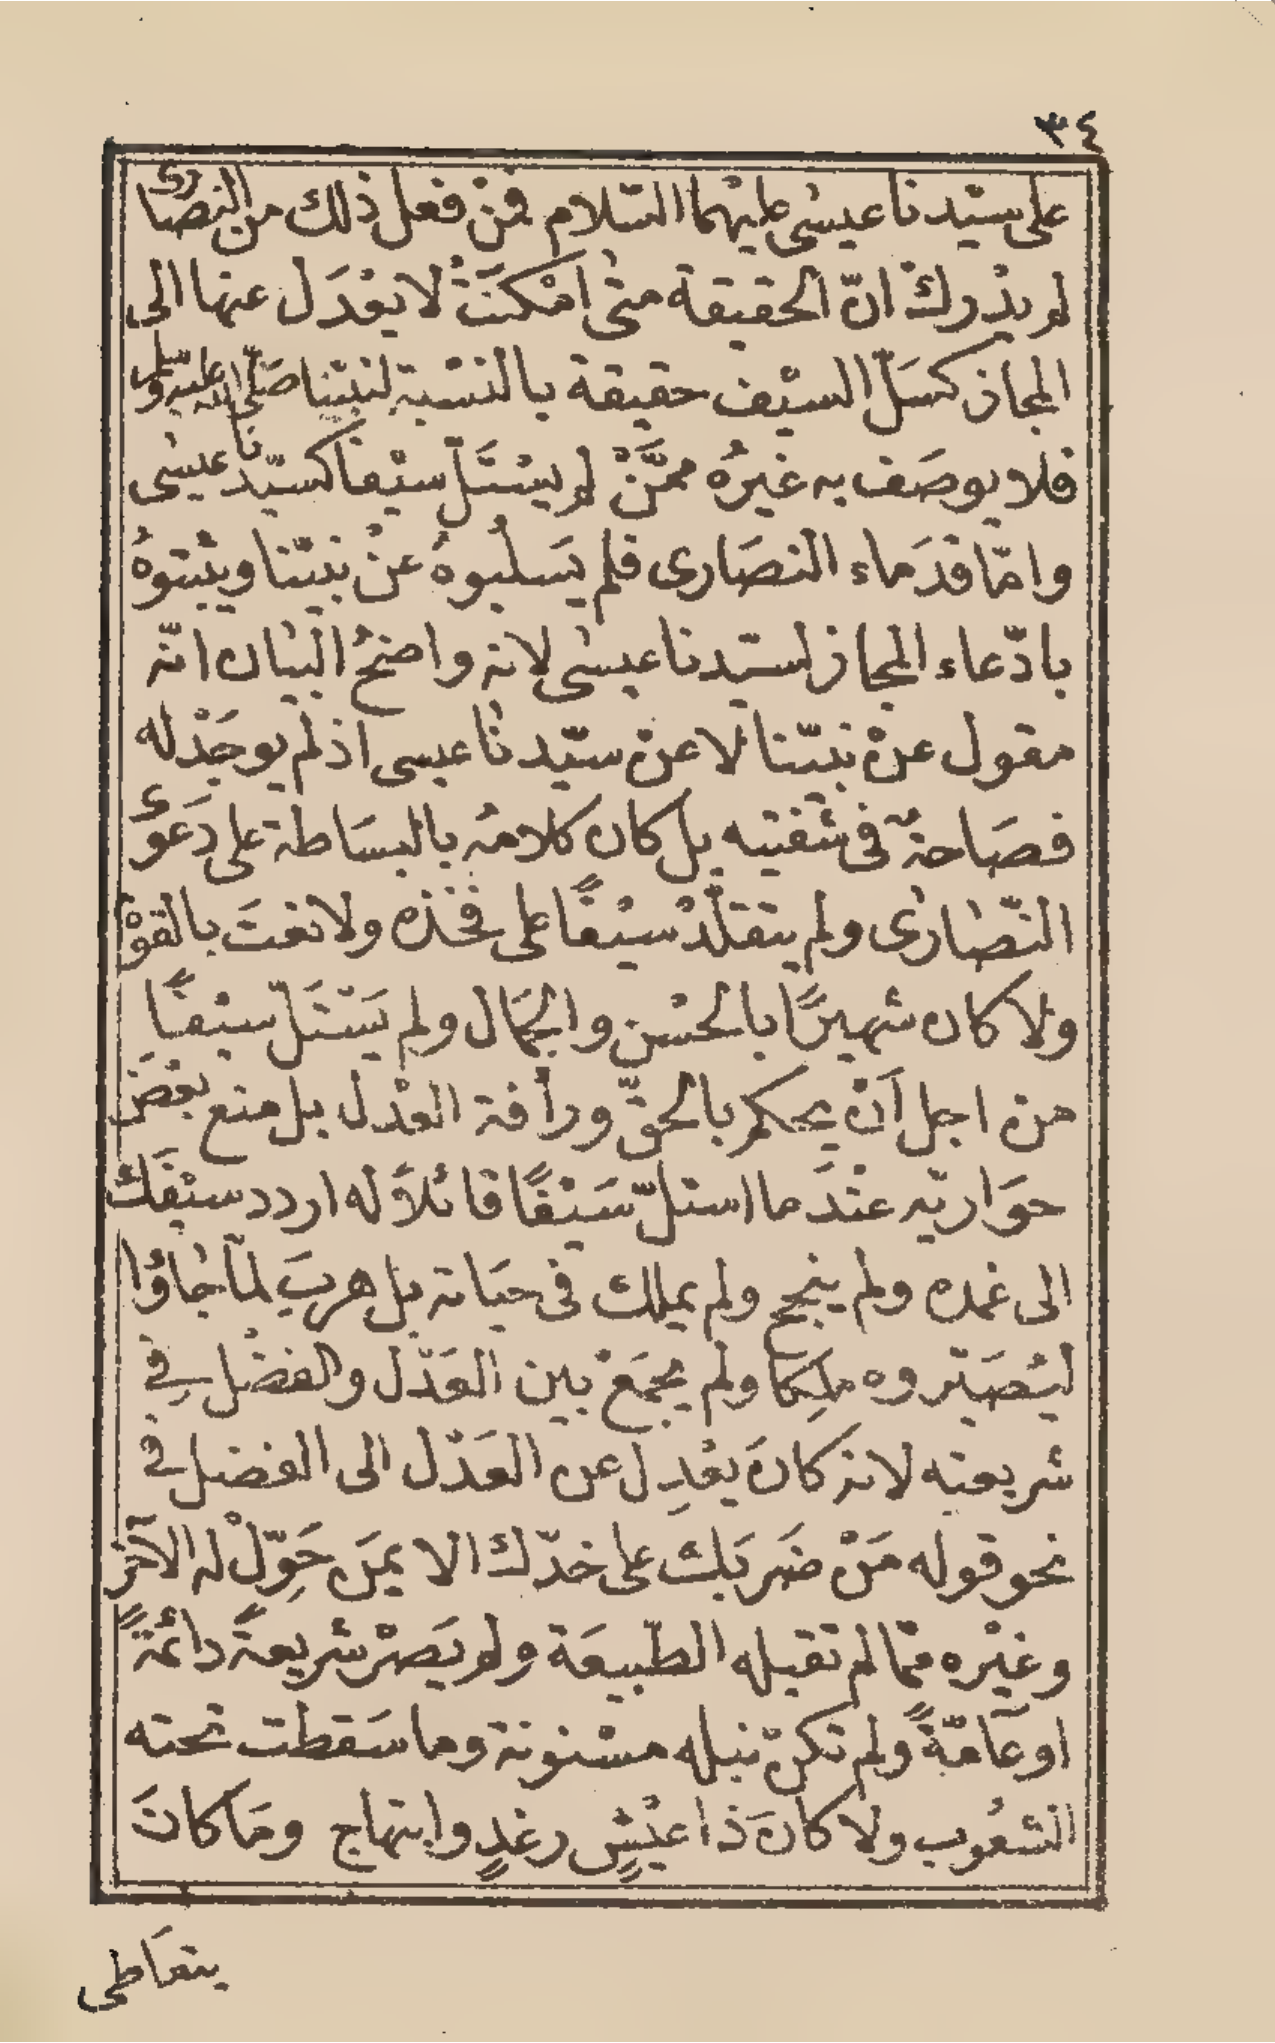 ٣٤
على سيّدنا عيسى عليهما السّلام فمنْ فعل ذلك من النصارى
لم يدْرك انّ الحقيقة متى امْكنَتْ لا يعْدَل عنها الى
المجاز كسَلّ السيْف حقيقة بالنسْبة لنبيّنا صَلّى الله عليه وسلم
فلا يوصَف به غيرُه ممَّنْ لم يسْتَلّ سيْفا كسيّدنا عيسى
وامّا قدَماء النصَارى فلم يَسلُبوهُ عنْ نبيّنا ويثبتوهُ
بادّعاء المجاز لسيّدنا عيسى لانه واضحُ البيان انّه
مقول عنْ نبيّنا لا عنْ سيّدنا عيسى اذ لم يوجَدْ له
فصَاحةٌ فى شفتيه بل كان كلامُه بالبسَاطة على دَعوَى
النّصارى ولم يتقلّدْ سيْفًا على فخذه ولا نعتَ بالقوّة
ولا كان شهيرًا بالحسْن والجمَال ولم يَسْتَلّ سيْفًا
من اجل اَنْ يحكم بالحقّ ورأفة العدْل بل منع بعْضَ
حوَاريّه عنْدَ ما استلّ سَيْفًا قائلاً له اردد سيْفَك
الى غمده ولم ينجح ولم يملك فى حيَاته بل هربَ لمّا جاؤا
ليُصَيّروه ملِكًا ولم يجمَعْ بين العَدْل والفضْل فِى
شريعته لانه كانَ يعْدِل عن العَدْل الى الفضل فى
نحو قوله مَنْ ضَربَك على خدّك الايمَن حَوِّلْ له الآخر
وغيْره ممّا لم تقبله الطّبيعَة ولم يَصرْ شريعةً دائمةً
او عَامّةً ولم تكنْ نبله مسْنونة وما سَقطت تحته
الشعُوب ولا كانَ ذا عيْشٍ رغدٍ وابتهاج ومَا كانَ
يتعَاطى